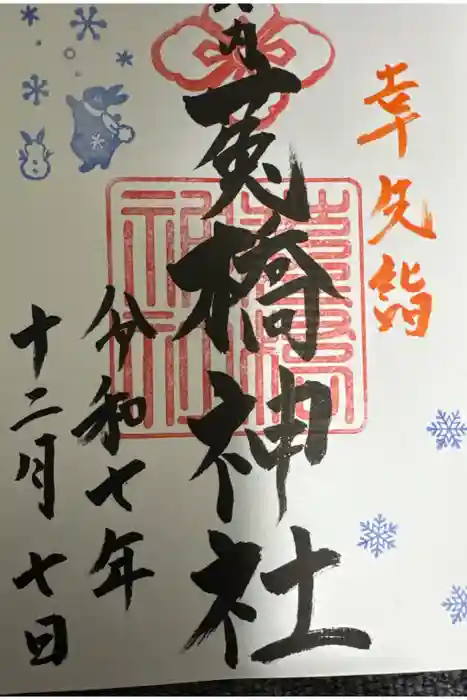 幸久詣
菟橋神社
令和七年
十二月七日